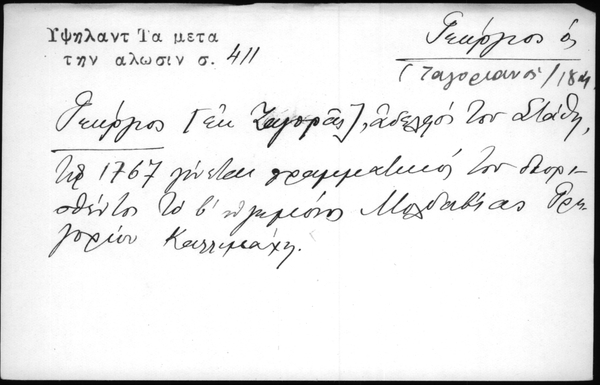 Υψηλαντ Τα μετα
την αλωσιν σ. 411
Γεώργιος ὁ
(Ζαγοριανός/18
Γεώργιος [ἐκ Ζαγορᾶς], ἀδελφός του Στάθη,
τῷ 1767 γίνεται γραμματικός του διορι-
σθέντος τὸ β' ηγεμόνος Μολδαβίας Γρη-
γορίου Καλλιμάχη.